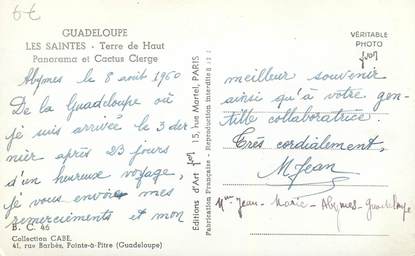 6€
GUADELOUPE
LES SAINTES - Terre de Haut
Panorama et Cactus Cierge
Abymes le 8 août 1960
De la Guadeloupe où
je suis arrivée le 3 der
nier après 23 jours
d'un heureux voyage,
je vous envoie mes
remerciements et mon
B. C. 46
Collection CABE,
41, rue Barbès, Pointe-à-Pitre (Guadeloupe)
Editions d'Art Yvon 15, rue Martel, PARIS
Fabrication Française - Reproduction interdite
VÉRITABLE
PHOTO
yvon
meilleur souvenir
ainsi qu'à votre gen-
tille collaboratrice.
Très cordialement,
M Jean
Jean - Marie - Abymes - Guadeloupe